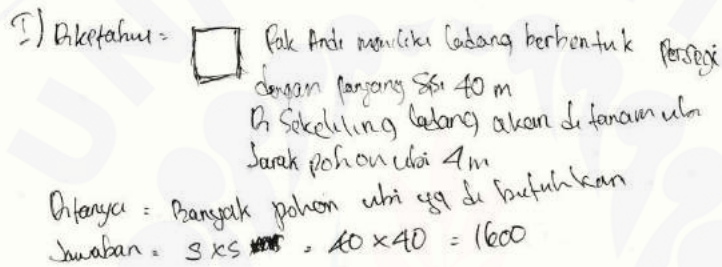 I) Diketahui = Pak Andi memiliki ladang berbentuk Persegi
dengan panjang sisi 40 m
Di Sekeliling ladang akan di tanam ubi
Jarak pohon ubi 4m
Ditanya = Banyak pohon ubi yg di butuhkan
Jawaban = S x S = 40 x 40 = 1600